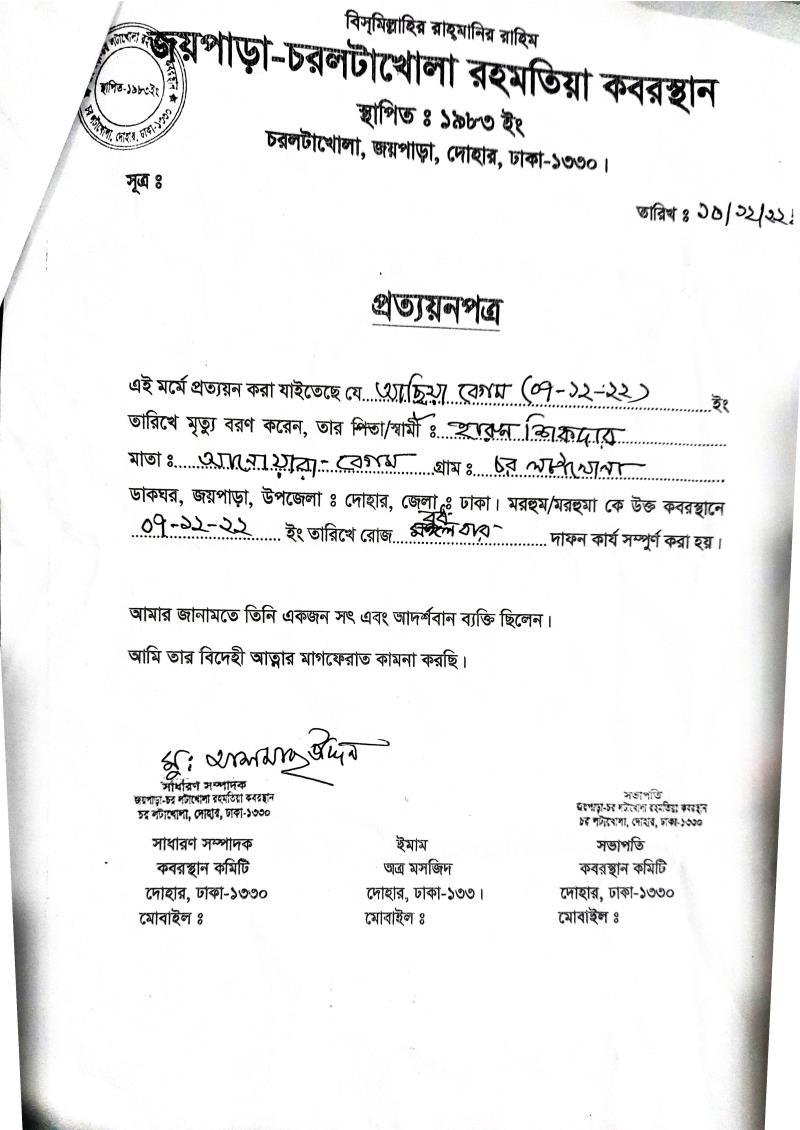 বিস্‌মিল্লাহির রাহ্‌মানির রাহিম
জয়পাড়া-চরলটাখোলা রহমতিয়া কবরস্থান
স্থাপিত ঃ ১৯৮৩ ইং
চরলটাখোলা, জয়পাড়া, দোহার, ঢাকা-১৩৩০।
স্থাপিত-১৯৮৩ইং
চর লটাখোলা, দোহার, ঢাকা-১৩৩০
সূত্র ঃ
তারিখ ঃ ১০/১২/২২
প্রত্যয়নপত্র
এই মর্মে প্রত্যয়ন করা যাইতেছে যে আছিয়া বেগম (০৭-১২-২২) ইং
তারিখে মৃত্যু বরণ করেন, তার পিতা/স্বামী ঃ হারুন শিকদার
মাতা ঃ আনোয়ারা-বেগম গ্রাম ঃ চর লটাখোলা
ডাকঘর, জয়পাড়া, উপজেলা ঃ দোহার, জেলা ঃ ঢাকা। মরহুম/মরহুমা কে উক্ত কবরস্থানে
০৭-১২-২২ ইং তারিখে রোজ বুধ বার দাফন কার্য সম্পূর্ণ করা হয়।
আমার জানামতে তিনি একজন সৎ এবং আদর্শবান ব্যক্তি ছিলেন।
আমি তার বিদেহী আত্নার মাগফেরাত কামনা করছি।
সাধারণ সম্পাদক
জয়পাড়া-চর লটাখোলা রহমতিয়া কবরস্থান
চর লটাখোলা, দোহার, ঢাকা-১৩৩০
সভাপতি
জয়পাড়া-চর লটাখোলা রহমতিয়া কবরস্থান
চর লটাখোলা, দোহার, ঢাকা-১৩৩০
সাধারণ সম্পাদক
কবরস্থান কমিটি
দোহার, ঢাকা-১৩৩০
মোবাইল ঃ
ইমাম
অত্র মসজিদ
দোহার, ঢাকা-১৩৩।
মোবাইল ঃ
সভাপতি
কবরস্থান কমিটি
দোহার, ঢাকা-১৩৩০
মোবাইল ঃ